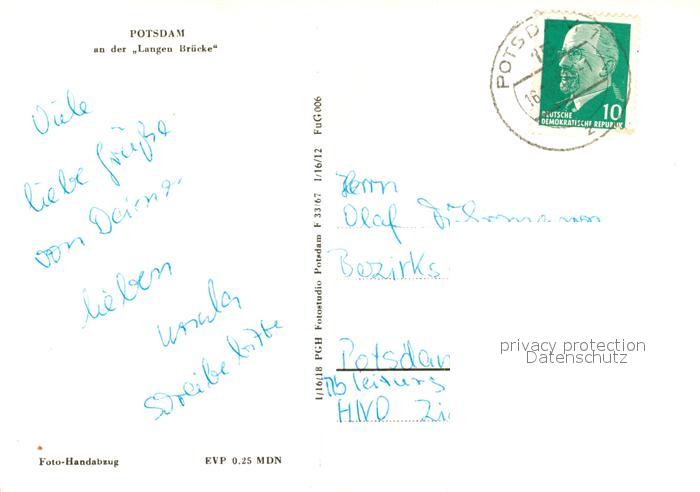 POTSDAM
an der „Langen Brücke“
Viele
liebe Grüße
von Deiner
lieben
Ursula
schreibe bitte
Foto-Handabzug
EVP 0.25 MDN
1/16/18 PGH Fotostudio Potsdam F 33/67 1/16/12 FuG 006
POTSDAM 1
16
2
10
DEUTSCHE
DEMOKRATISCHE REPUBLIK
Herrn
Olaf
Bezirks
Potsdam
Abteilung
HNO
privacy protection
Datenschutz